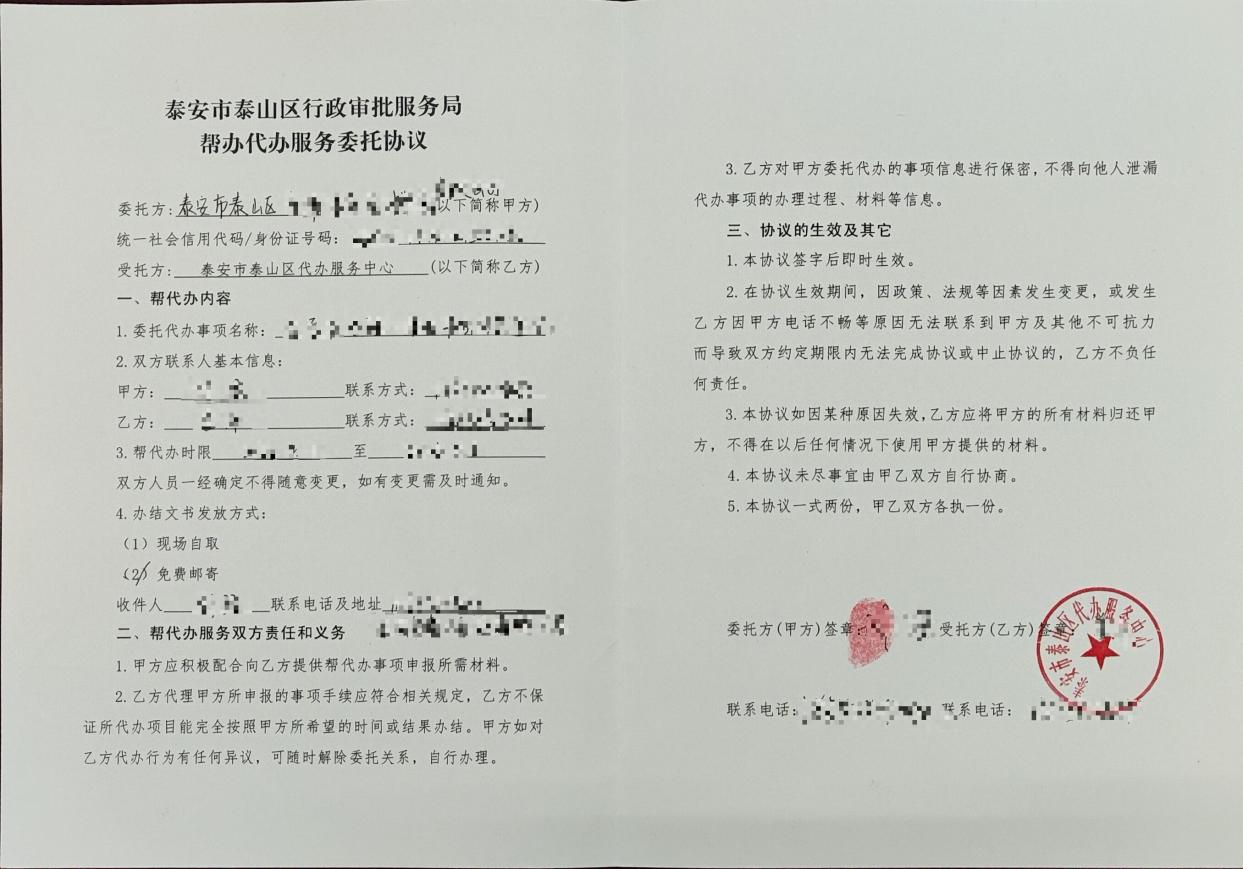 泰安市泰山区行政审批服务局
帮办代办服务委托协议
委托方:泰安市泰山区 以下简称甲方)
统一社会信用代码/身份证号码:
受托方: 泰安市泰山区代办服务中心 (以下简称乙方)
一、帮代办内容
1.委托代办事项名称:
2.双方联系人基本信息:
甲方: 联系方式:
乙方: 联系方式:
3.帮代办时限 至
双方人员一经确定不得随意变更，如有变更需及时通知。
4.办结文书发放方式:
(1)现场自取
(2)免费邮寄
收件人 联系电话及地址
二、帮代办服务双方责任和义务
1.甲方应积极配合向乙方提供帮代办事项申报所需材料。
2.乙方代理甲方所申报的事项手续应符合相关规定，乙方不保
证所代办项目能完全按照甲方所希望的时间或结果办结。甲方如对
乙方代办行为有任何异议，可随时解除委托关系，自行办理。
3.乙方对甲方委托代办的事项信息进行保密,不得向他人泄漏
代办事项的办理过程、材料等信息。
三、协议的生效及其它
1.本协议签字后即时生效。
2.在协议生效期间，因政策、法规等因素发生变更，或发生
乙方因甲方电话不畅等原因无法联系到甲方及其他不可抗力
而导致双方约定期限内无法完成协议或中止协议的，乙方不负任
何责任。
3.本协议如因某种原因失效,乙方应将甲方的所有材料归还甲
方，不得在以后任何情况下使用甲方提供的材料。
4.本协议未尽事宜由甲乙双方自行协商。
5.本协议一式两份，甲乙双方各执一份。
委托方(甲方)签章: 受托方(乙方)签章:
泰安市泰山区代办服务中心
联系电话: 联系电话: